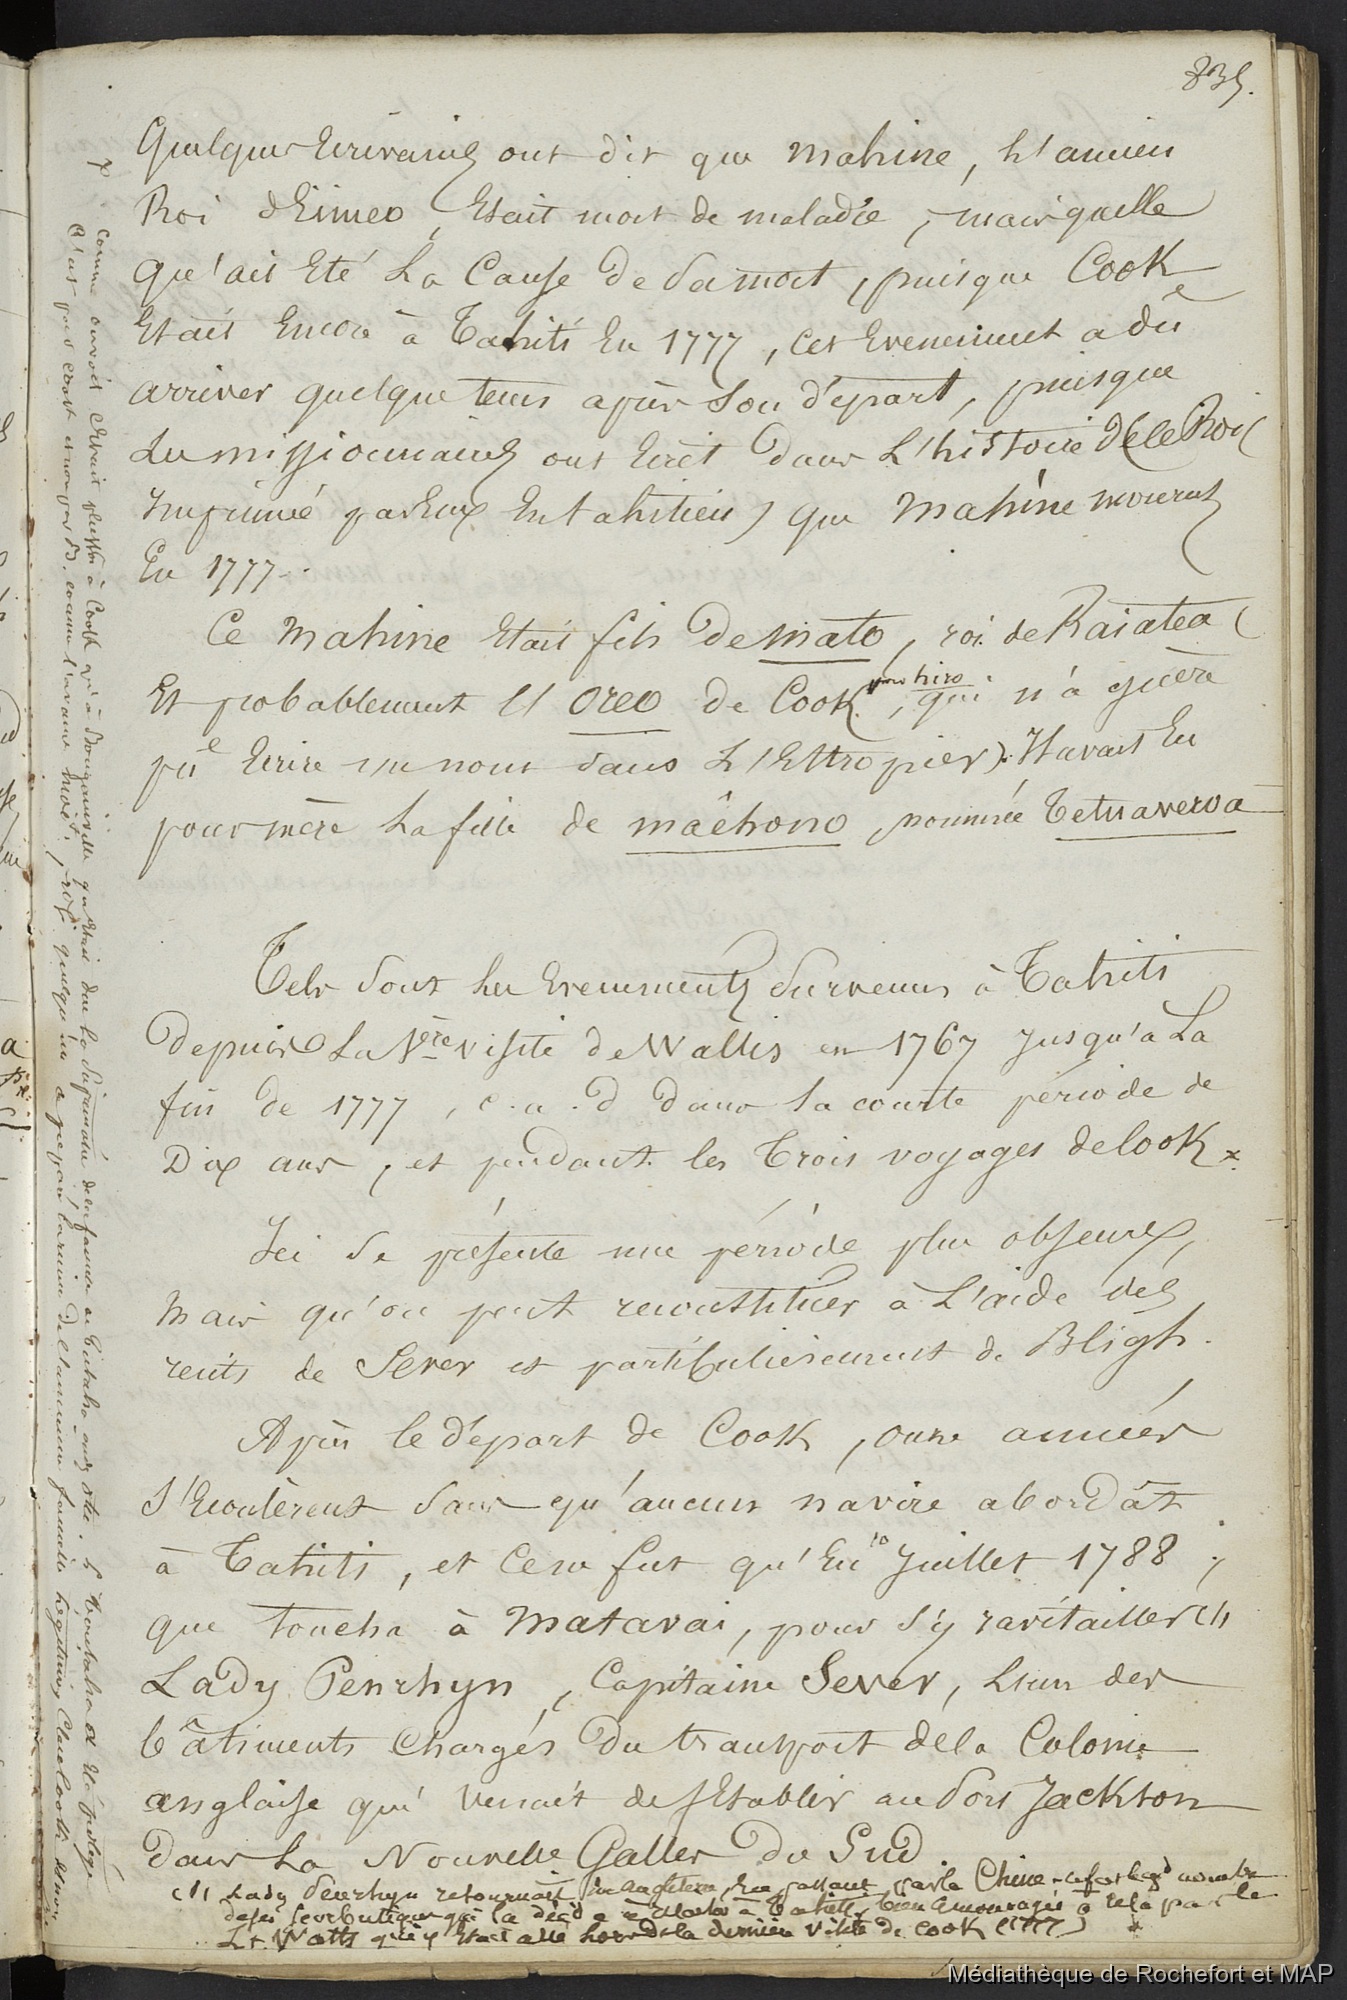 835.
Quelques Ecrivains ont dit que Mahine, l'ancien
Roi d'Eimeo, Etait mort de maladie, mais quelle
qu'ait Eté La Cause de Sa mort, puisque Cook
Etait Encore à Tahiti En 1777, cet Evenement a dû
arriver quelque tems après Son départ, puisque
Les missionnaires ont Ecrit dans L'histoire de ce Roi (
Imprimée par Eux En tahitien) que Mahine mourut
En 1777.
Ce Mahine Etait fils de mato, roi de Raiatea (
Et probablement l'Oreo de Cook, pour hiro, qui n'a guère
pû Ecrire un nom sans L'Estropier). Il avait Eu
pour mère La fille de maêhono, nommée Tetuaveroa
Tels Sont les Evenements Survenus à Tahiti
depuis La 1ère visite de Wallis en 1767 Jusqu'a La
fin de 1777, c.a.d dans la courte période de
Dix ans, et pendant les Trois voyages de Cook x.
Ici Se présente une période plus obscure,
Mais qu'on peut reconstituer à L'aide des
recits de Sever et particulierement de Bligh.
Après le départ de Cook, onze années
S'Ecoulèrent Sans qu'aucun navire abordât
à Tahiti, et Ce ne fut qu'En 10 Juillet 1788,
que toucha à Matavai, pour S'y ravitailler (1)
Lady Penrhyn, Capitaine Sever, L'un des
bâtiments Chargés Du transport de la Colonie
anglaise qui Venait de S'Etablir au Port Jackson
dans La Nouvelle Galles Du Sud.
(1) Lady Penrhyn retournait En Angleterre, En passant par la Chine. le fort grd nombre
de ses Scorbutiques la décida à relacher à Tahiti, bien Encouragée à cela par le
Lt Watts qui y Etait allé lors de la dernière visite de Cook (1777)
x comme on voit Etait plustôt à Cook qu'à Bougainville